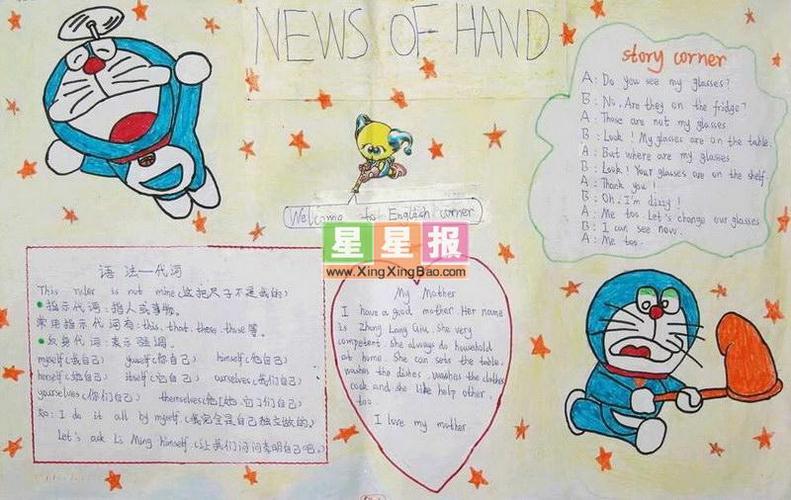 NEWS OF HAND
story corner
A: Do you see my glasses?
B: No. Are they on the fridge?
A: Those are not my glasses
B: Look! My glasses are on the table.
A: But where are my glasses
B: Look! Your glasses are on the shelf.
A: Thank you!
B: Oh. I'm dizzy!
A: Me too. Let's change our glasses
B: I can see now.
A: Me too.
Welcome to English corner
星星报
www.XingXingBao.com
语法—代词
This ruler is not mine (这把尺子不是我的)
指示代词:指人或事物。
常用指示代词有:this. that. these. those等。
反身代词:表示强调。
myself(我自己) youself(你自己) himself(他自己)
herself(她自己) itself(它自己) ourselves(我们自己)
yourselves(你们自己) themselves(他[她.它]们自己)
如: I do it all by myself.(我完全是自己独立做的)
Let's ask Li Ming himself.(让我们问问李明自己吧。)
My Mother
I have a good mother Her name
is Zhong Lang Qiu. She very
competent. She always do household
at home. She can sets the table.
washes the dishes. washes the clothes
cook and she like help other.
too.
I love my mother